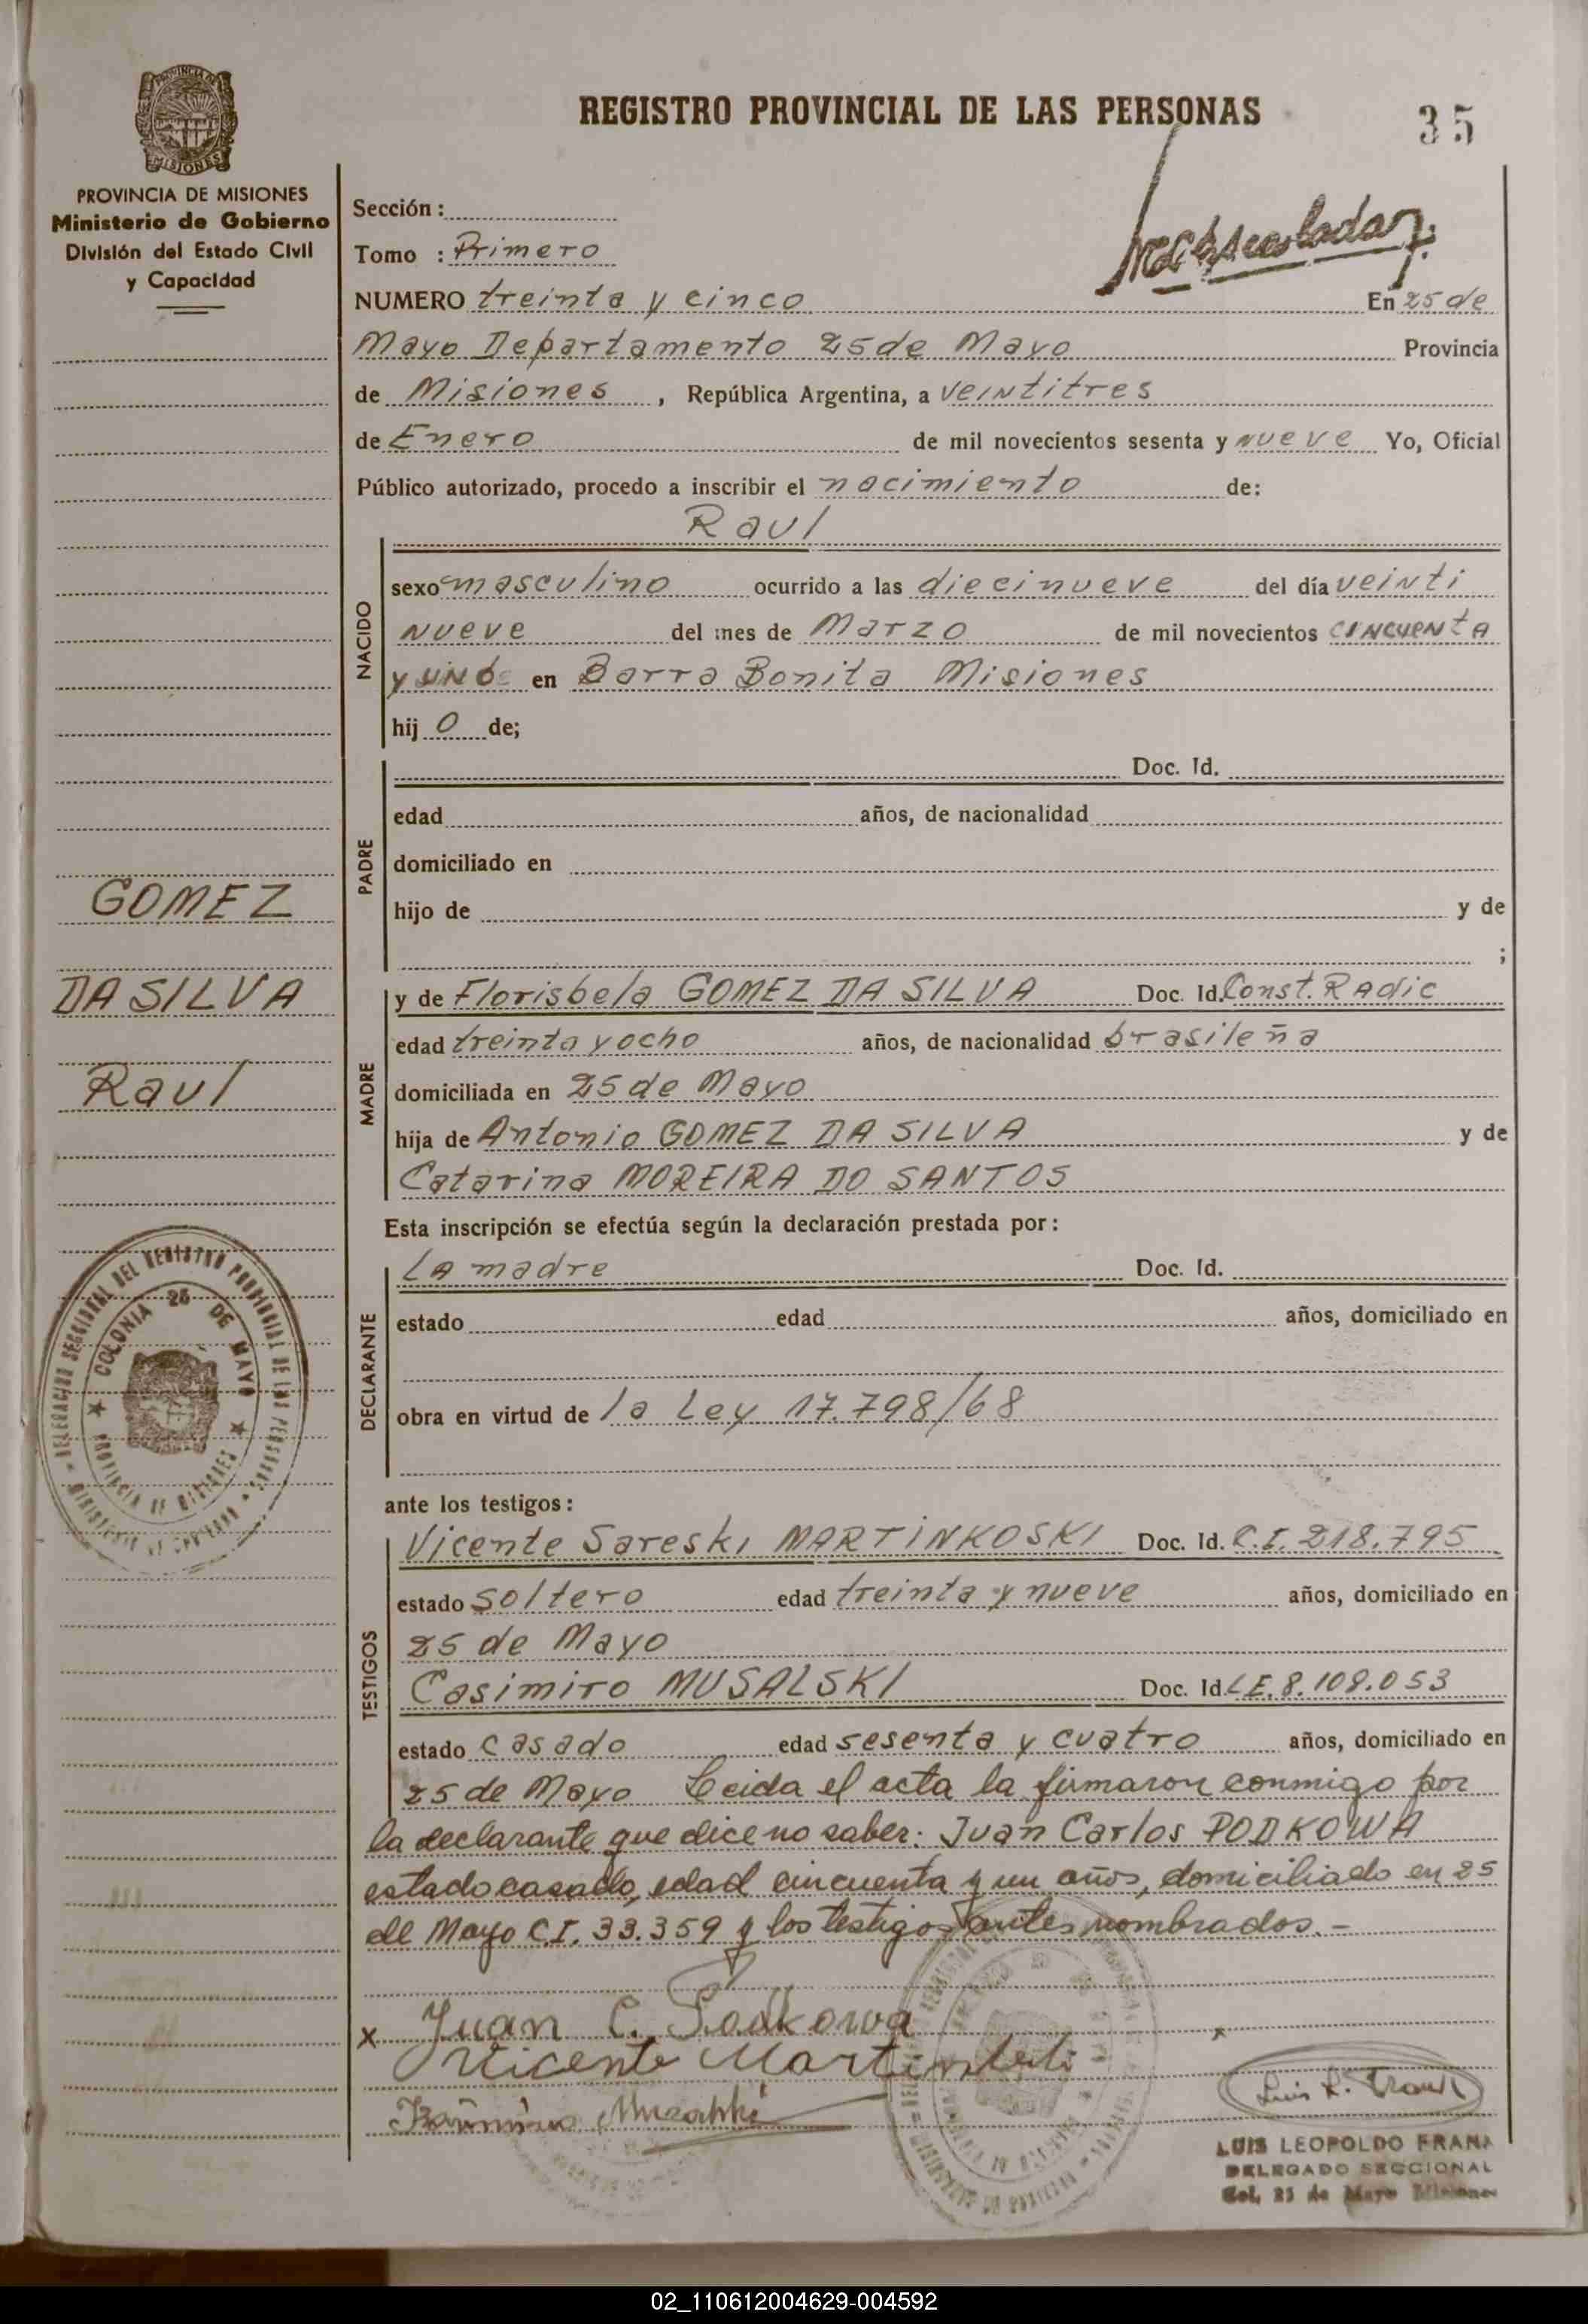 REGISTRO PROVINCIAL DE LAS PERSONAS
35
PROVINCIA DE MISIONES
Ministerio de Gobierno
División del Estado Civil
y Capacidad
Sección :
Tomo : Primero
NUMERO treinta y cinco En 25 de
Mayo Departamento 25 de Mayo Provincia
de Misiones , República Argentina, a veintitres
de Enero de mil novecientos sesenta y nueve Yo, Oficial
Público autorizado, procedo a inscribir el nacimiento de:
NACIDO
Raul
sexo masculino ocurrido a las diecinueve del día veinti
nueve del mes de Marzo de mil novecientos cincuenta
y uno en Barra Bonita Misiones
hij o de;
PADRE
Doc. Id.
edad años, de nacionalidad
domiciliado en
hijo de y de
;
GOMEZ
DA SILVA
Raul
MADRE
y de Florisbela GOMEZ DA SILVA Doc. Id. Const. Radic
edad treinta y ocho años, de nacionalidad brasileña
domiciliada en 25 de Mayo
hija de Antonio GOMEZ DA SILVA y de
Catarina MOREIRA DO SANTOS
Esta inscripción se efectúa según la declaración prestada por:
DECLARANTE
La madre Doc. Id.
estado edad años, domiciliado en
obra en virtud de la Ley 17.798/68
COLONIA 25 DE MAYO
PROVINCIA DE MISIONES
ante los testigos:
TESTIGOS
Vicente Sareski MARTINKOSKI Doc. Id. C.I. 218.795
estado soltero edad treinta y nueve años, domiciliado en
25 de Mayo
Casimiro MUSALSKI Doc. Id. L.E. 8.108.053
estado casado edad sesenta y cuatro años, domiciliado en
25 de Mayo Leida el acta la firmaron conmigo por
la declarante que dice no saber: Juan Carlos PODKOWA
estado casado, edad cincuenta y un años, domiciliado en 25
de Mayo C.I. 33.359 y los testigos antes nombrados.-
x Juan C. Podkowa
Vicente
Luis L. Frank
LUIS LEOPOLDO FRANK
DELEGADO SECCIONAL
Col. 25 de Mayo Misiones
02_110612004629-004592